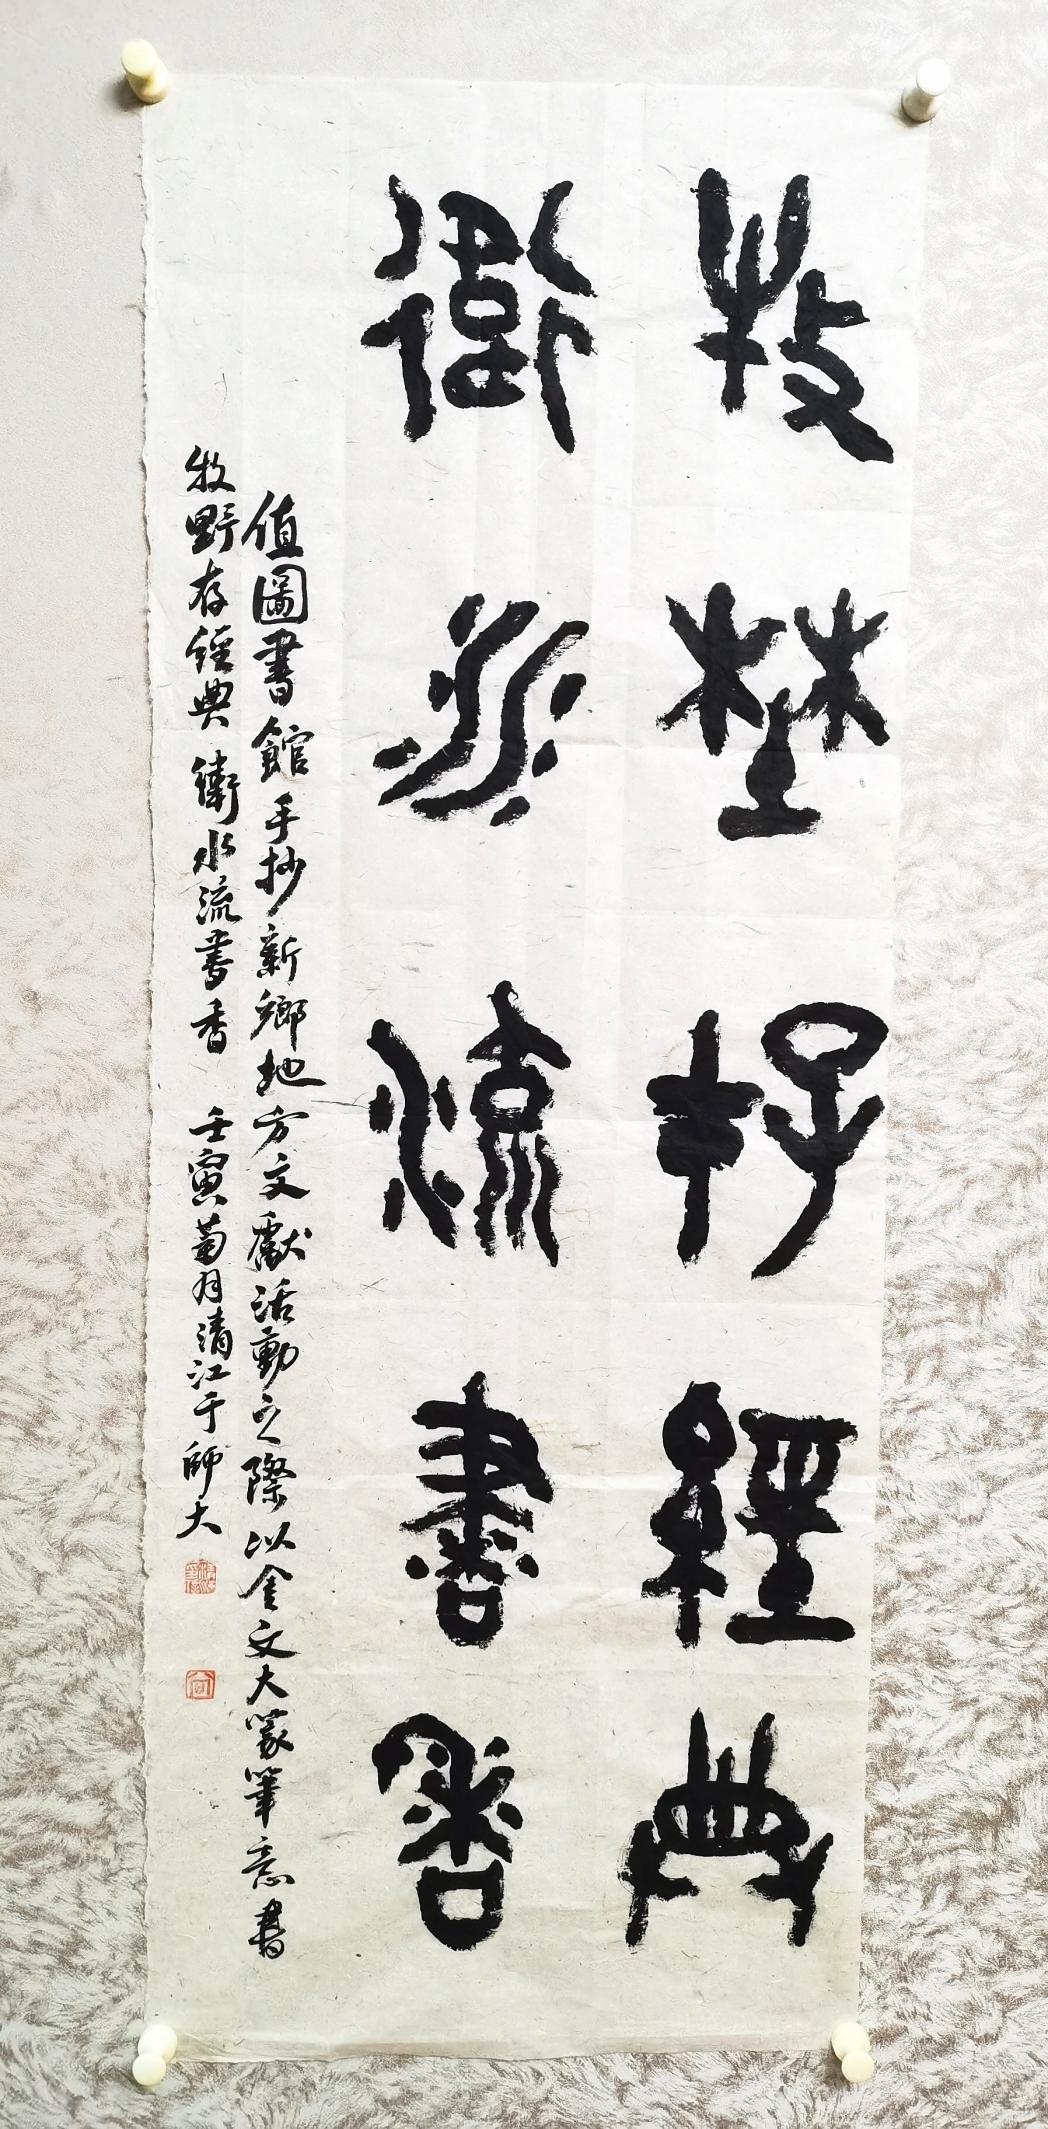 牧埜存經典
衛水流書香
值圖書館手抄新鄉地方文獻活動之際以金文大篆筆意書
牧野存經典衛水流書香 壬寅菊月清江于師大